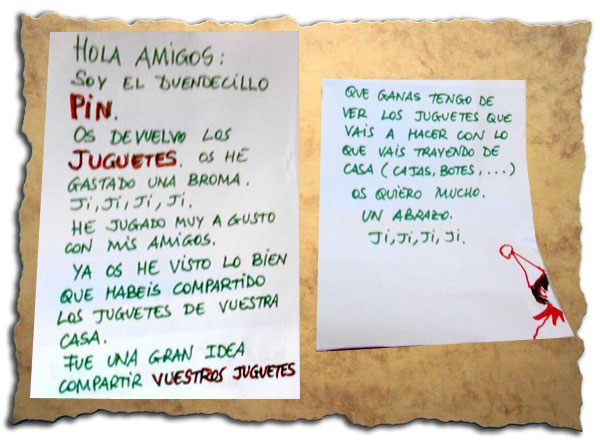 HOLA AMIGOS:
SOY EL DUENDECILLO
PIN.
OS DEVUELVO LOS
JUGUETES. OS HE
GASTADO UNA BROMA.
JI, JI, JI, JI.
HE JUGADO MUY A GUSTO
CON MIS AMIGOS.
YA OS HE VISTO LO BIEN
QUE HABEIS COMPARTIDO
LOS JUGUETES DE VUESTRA
CASA.
FUE UNA GRAN IDEA
COMPARTIR VUESTROS JUGUETES
QUE GANAS TENGO DE
VER LOS JUGUETES QUE
VAIS A HACER CON LO
QUE VAIS TRAYENDO DE
CASA (CAJAS, BOTES, ...)
OS QUIERO MUCHO.
UN ABRAZO.
JI, JI, JI, JI.